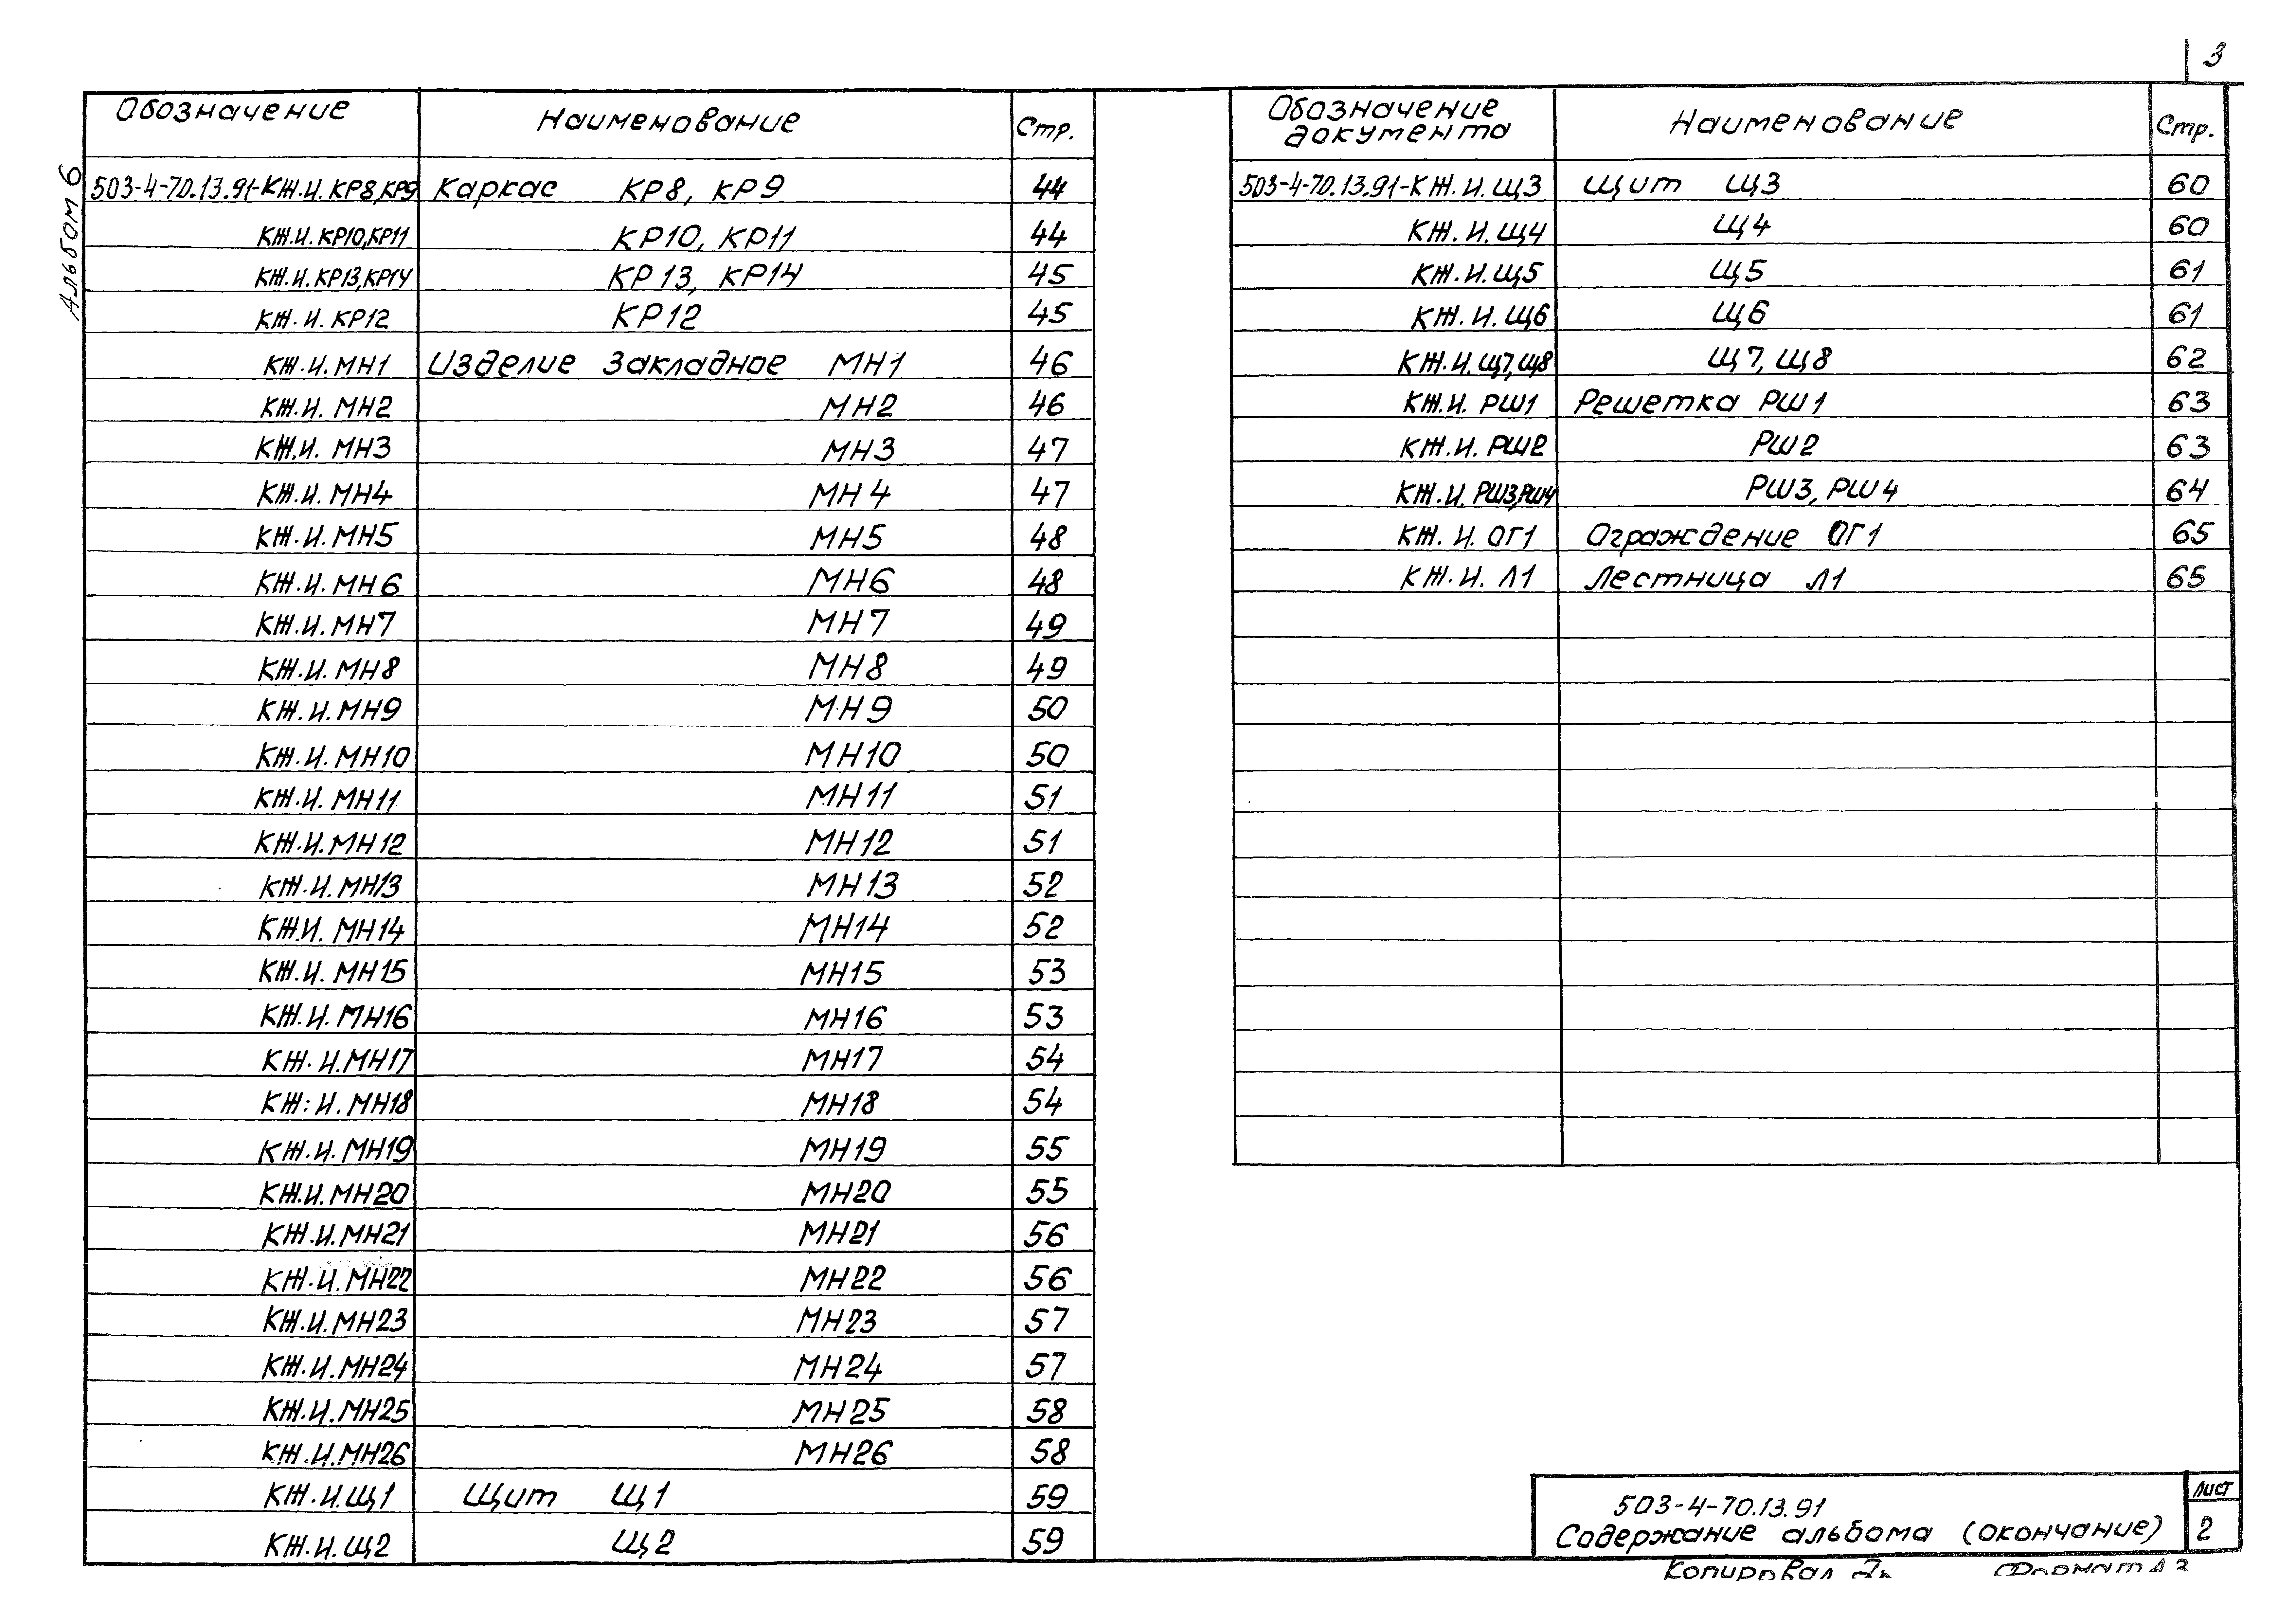 3
Альбом 6
Обозначение Наименование Стр.
503-4-70.13.91-КЖ.И.КР8,КР9 Каркас КР8, КР9 44
КЖ.И.КР10,КР11 КР10, КР11 44
КЖ.И.КР13,КР14 КР13, КР14 45
КЖ.И.КР12 КР12 45
КЖ.И.МН1 Изделие закладное МН1 46
КЖ.И.МН2 МН2 46
КЖ.И.МН3 МН3 47
КЖ.И.МН4 МН4 47
КЖ.И.МН5 МН5 48
КЖ.И.МН6 МН6 48
КЖ.И.МН7 МН7 49
КЖ.И.МН8 МН8 49
КЖ.И.МН9 МН9 50
КЖ.И.МН10 МН10 50
КЖ.И.МН11 МН11 51
КЖ.И.МН12 МН12 51
КЖ.И.МН13 МН13 52
КЖ.И.МН14 МН14 52
КЖ.И.МН15 МН15 53
КЖ.И.МН16 МН16 53
КЖ.И.МН17 МН17 54
КЖ.И.МН18 МН18 54
КЖ.И.МН19 МН19 55
КЖ.И.МН20 МН20 55
КЖ.И.МН21 МН21 56
КЖ.И.МН22 МН22 56
КЖ.И.МН23 МН23 57
КЖ.И.МН24 МН24 57
КЖ.И.МН25 МН25 58
КЖ.И.МН26 МН26 58
КЖ.И.Щ1 Щит Щ1 59
КЖ.И.Щ2 Щ2 59
Обозначение документа Наименование Стр.
503-4-70.13.91-КЖ.И.Щ3 Щит Щ3 60
КЖ.И.Щ4 Щ4 60
КЖ.И.Щ5 Щ5 61
КЖ.И.Щ6 Щ6 61
КЖ.И.Щ7,Щ8 Щ7, Щ8 62
КЖ.И.РШ1 Решетка РШ1 63
КЖ.И.РШ2 РШ2 63
КЖ.И.РШ3,РШ4 РШ3, РШ4 64
КЖ.И.ОГ1 Ограждение ОГ1 65
КЖ.И.Л1 Лестница Л1 65
503-4-70.13.91
Содержание альбома (окончание)
Лист
2
Копировал Формат А3